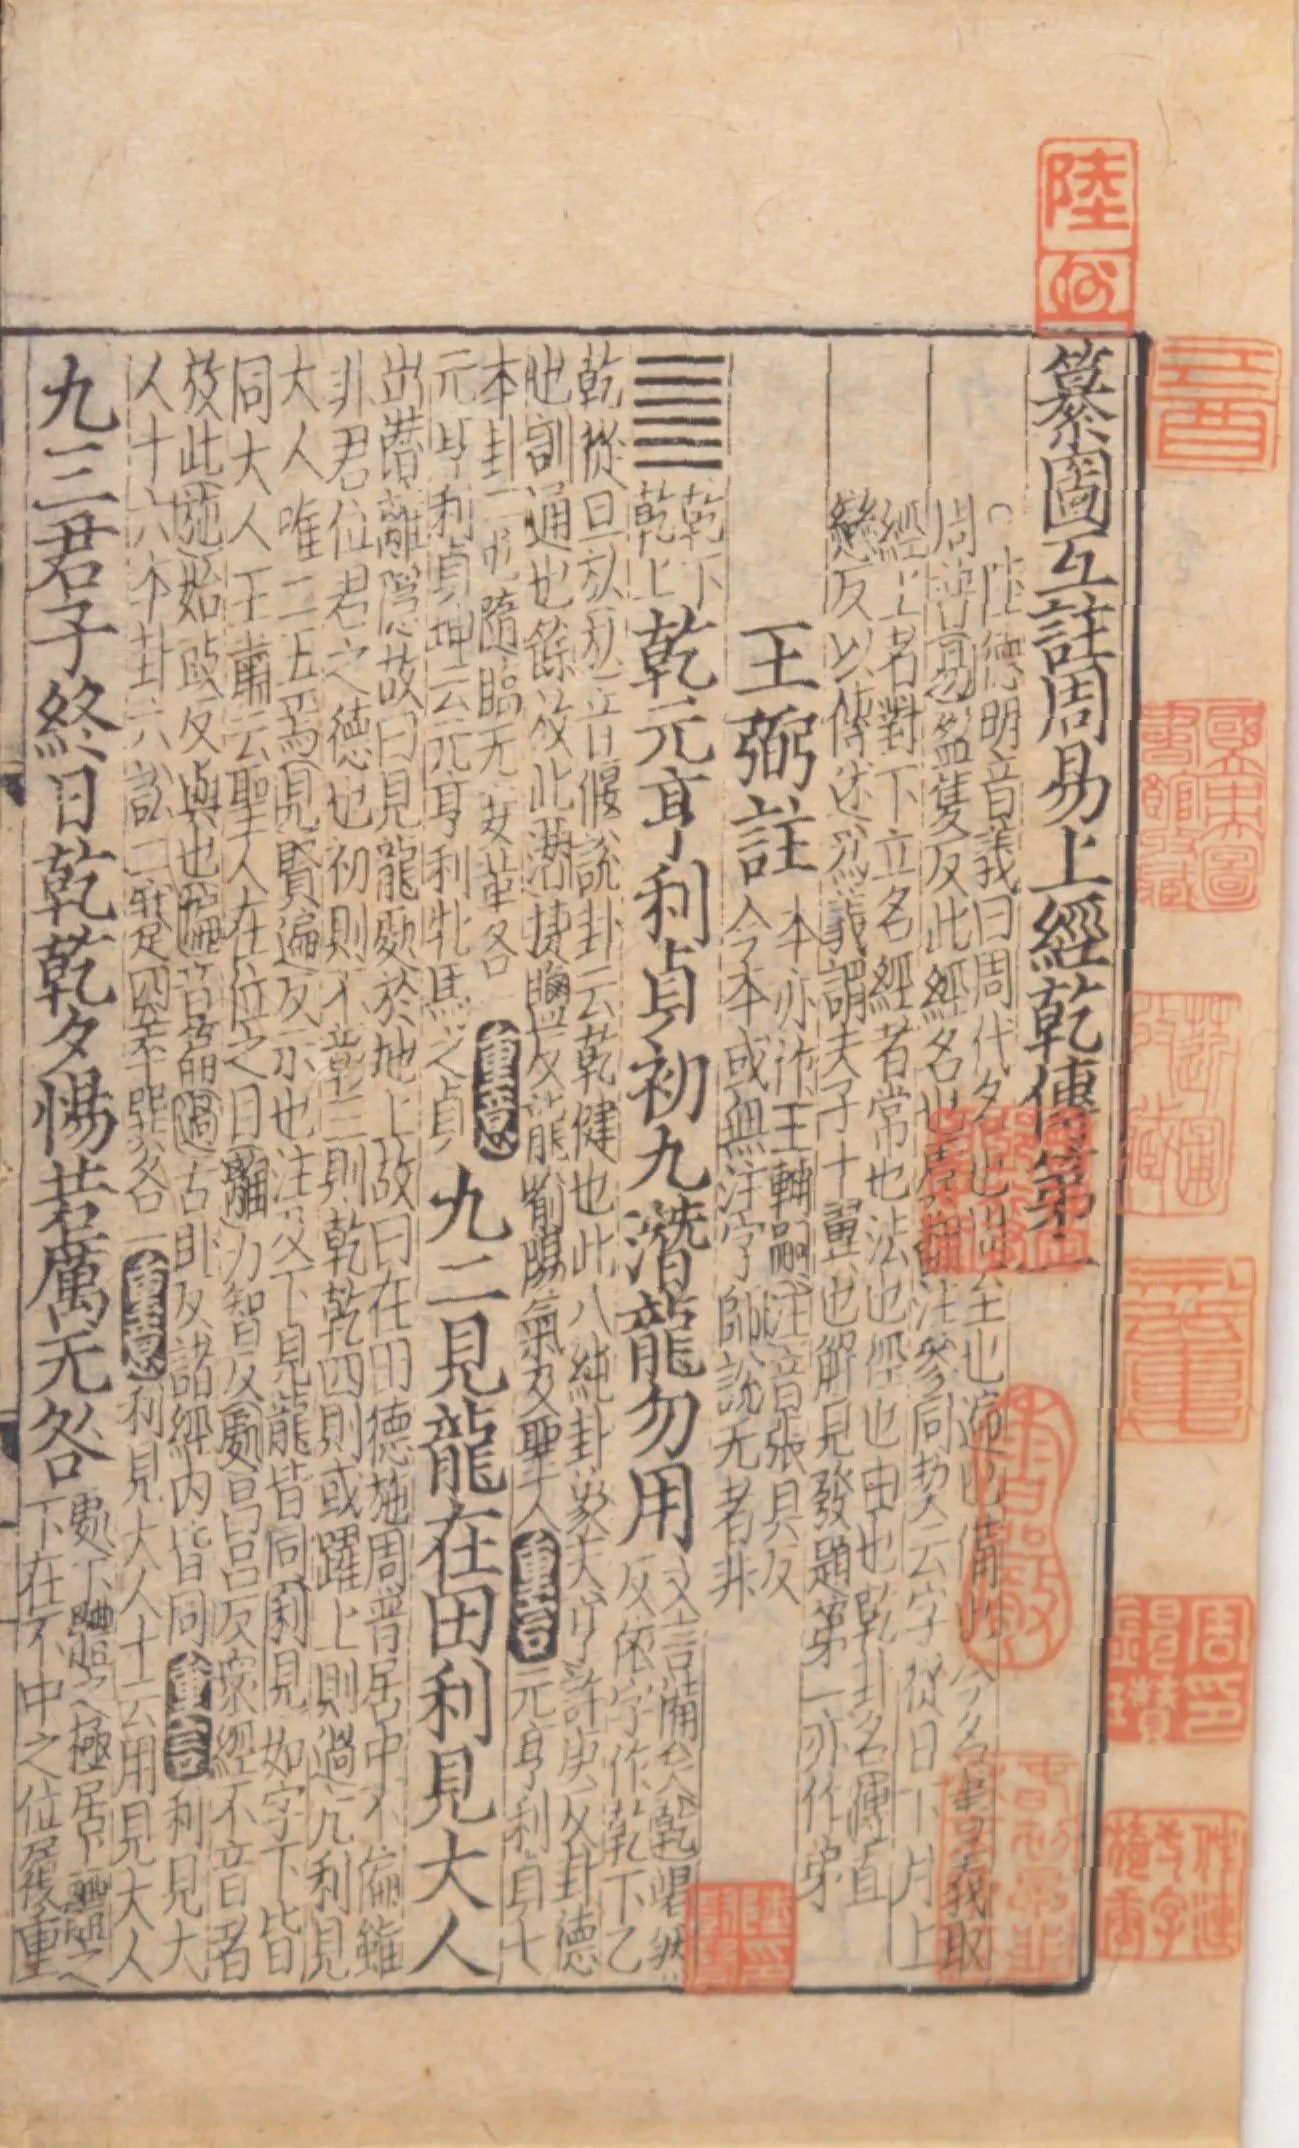 纂圖互註周易上經乾傳第一
陸德明音義曰周代名也周至也遍也備也今名書義取
周普易盈隻反此經名也虞翻注參同契云字從日下月上
經上者對下立名經者常也法也徑也由也乾卦名傳直
戀反以傳述爲義謂夫子十翼也解見發題第一亦作弟
王弼註 本亦作王輔嗣注音張具反
今本或無注字師說无者非
䷀ 乾下
乾上 乾元亨利貞初九潛龍勿用 文言備矣乾竭然
反依字作乾下乙
乾從旦㫃㫃音偃說卦云乾健也此八純卦象天亨許庚反卦德
也訓通也餘放此潛捷鹽反龍喻陽氣及聖人 重言 元亨利貞七
本卦一屯隨臨无妄革各一 重意
元亨利貞坤云元亨利牝馬之貞 九二見龍在田利見大人
出潛離隱故曰見龍處於地上故曰在田德施周普居中不偏雖
非君位君之德也初則不彰三則乾乾四則或躍上則過亢利見
大人唯二五焉見賢遍反示也注及下見龍皆同利見如字下皆
同大人王肅云聖人在位之目離力智反處昌呂反衆經不音者
放此施始豉反與也徧音遍過古卧反諸經內皆同 重言 利見大
人十六本卦六訟二蹇四萃巽各一 重意 利見大人升云用見大人
九三君子終日乾乾夕惕若厲无咎 處下體之極居上體之
下在不中之位履重
陸沆